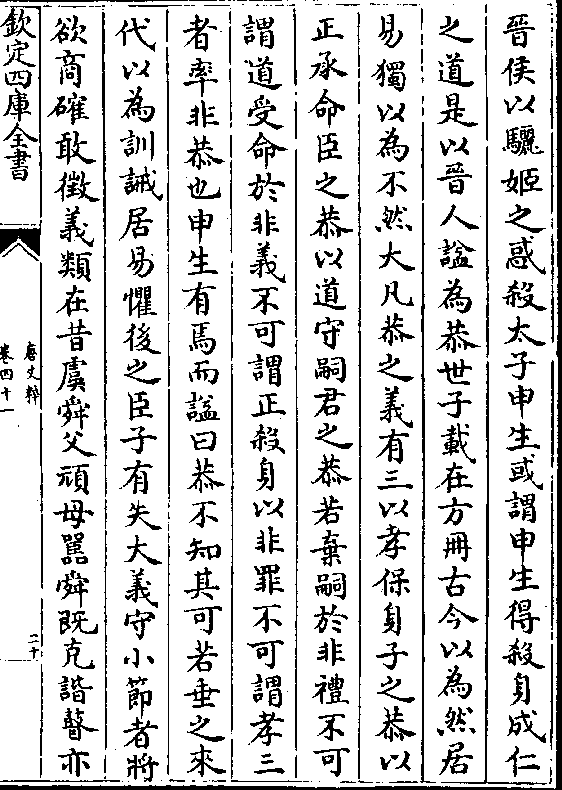 晉侯以驪姬之惑殺太子申生或謂申生得殺身成仁
之道是以晉人諡為恭世子載在方冊古今以為然居
易獨以為不然大凡恭之義有三以孝保身子之恭以
正承命臣之恭以道守嗣君之恭若棄嗣於非禮不可
謂道受命於非義不可謂正殺身以非罪不可謂孝三
者率非恭也申生有焉而諡曰恭不知其可若垂之來
代以為訓誡居易懼後之臣子有失大義守小節者將
欲商確敢徵義類在昔虞舜父頑母嚚舜既克諧瞽亦
欽定四庫全書
唐文粹
卷四十一
二十